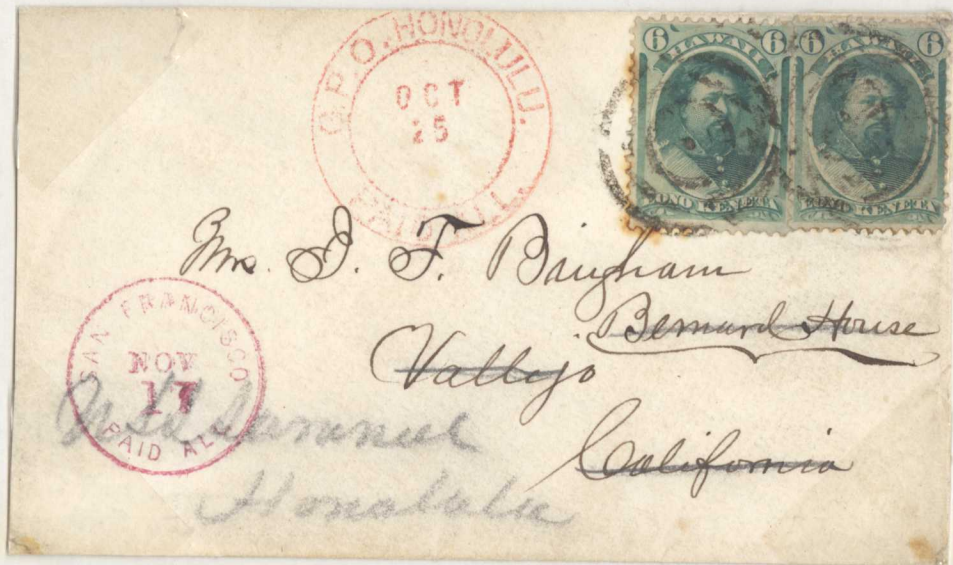 G.P.O. HONOLULU.
OCT
25
PAID ALL
6 HAWAII 6
EONO KENETA
6 HAWAII 6
EONO KENETA
Mrs. J. F. Bingham
Bernard House
Vallejo
California
SAN FRANCISCO
NOV
17
PAID ALL
Honolulu